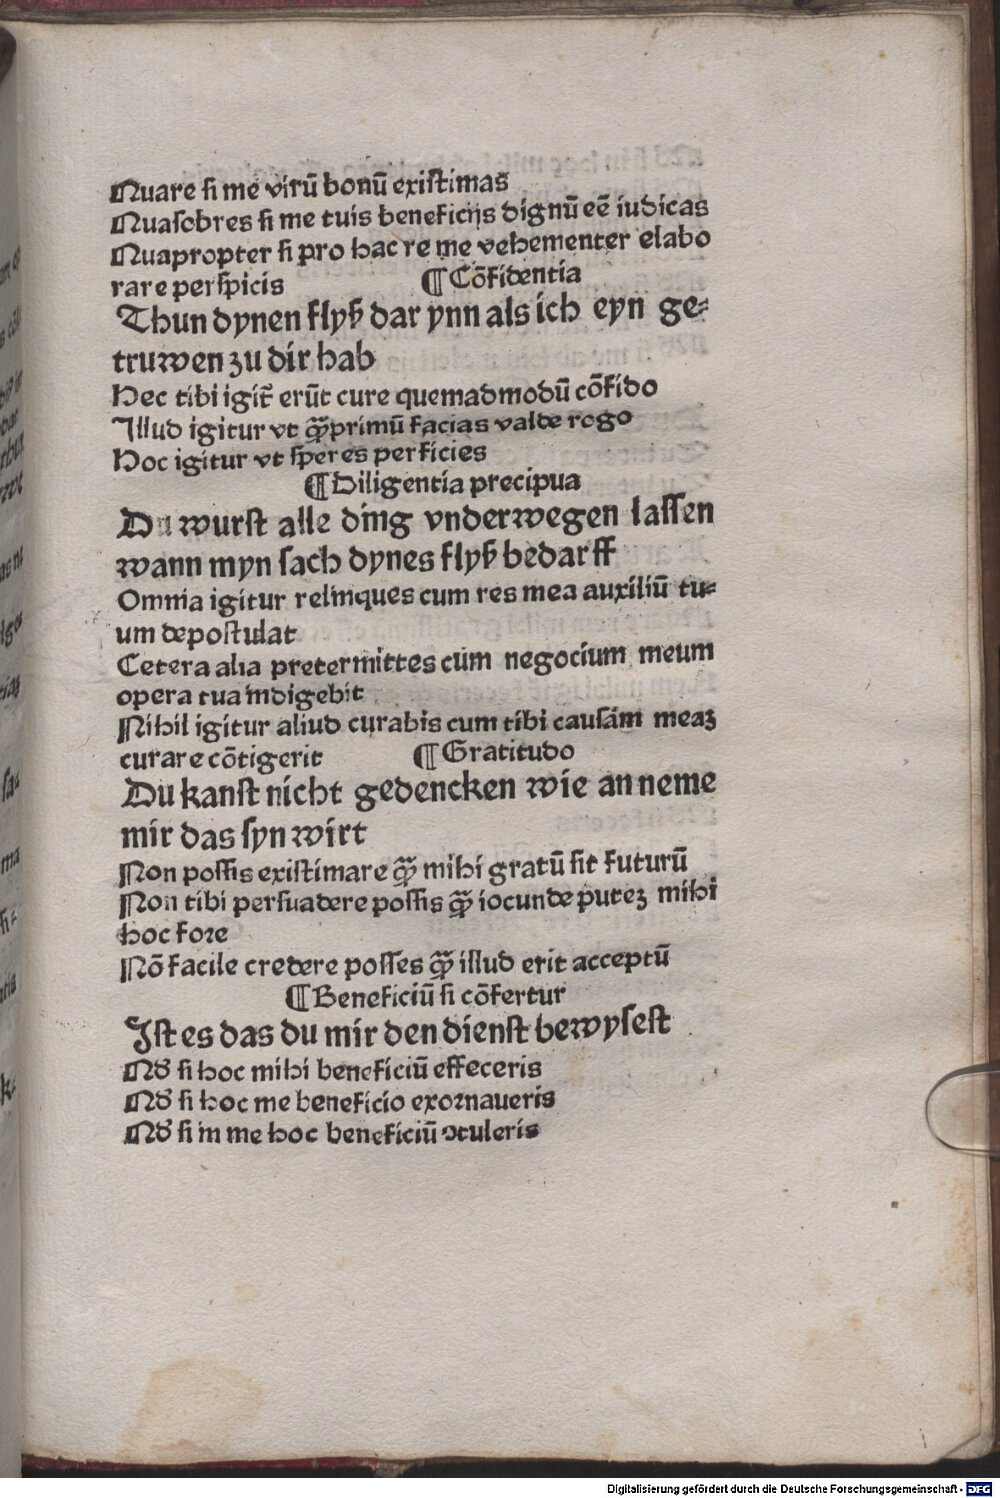 Quare si me virū bonū existimas
Quasobres si me tuis beneficijs dignū eē iudicas
Quapropter si pro hac re me vehementer elabo
rare perspicis ¶Cōfidentia
Thun dynen flyß dar ynn als ich eyn ge⸗
truwen zu dir hab
Hec tibi igit̄ erūt cure quemadmodū cōfido
Illud igitur vt q̄ꝫprimū facias valde rogo
Hoc igitur vt speres perficies
¶Diligentia precipua
Du wurst alle ding vnderwegen lassen
wann myn sach dynes flyß bedarff
Omnia igitur relinques cum res mea auxiliū tu⸗
um depostulat
Cetera alia pretermittes cum negocium meum
opera tua indigebit
Nihil igitur aliud curabis cum tibi causam meaꝫ
curare cōtigerit ¶Gratitudo
Du kanst nicht gedencken wie an neme
mir das syn wirt
Non possis existimare q̄ꝫ mihi gratū sit futurū
Non tibi persuadere possis q̄ꝫ iocunde puteꝫ mihi
hoc fore
Nō facile credere posses q̄ꝫ illud erit acceptū
¶Beneficiū si cōfertur
Ist es das du mir den dienst bewysest
Qđ si hoc mihi beneficiū effeceris
Qđ si hoc me beneficio exornaueris
Qđ si in me hoc beneficiū ↄtuleris
Digitalisierung gefördert durch die Deutsche Forschungsgemeinschaft - DFG